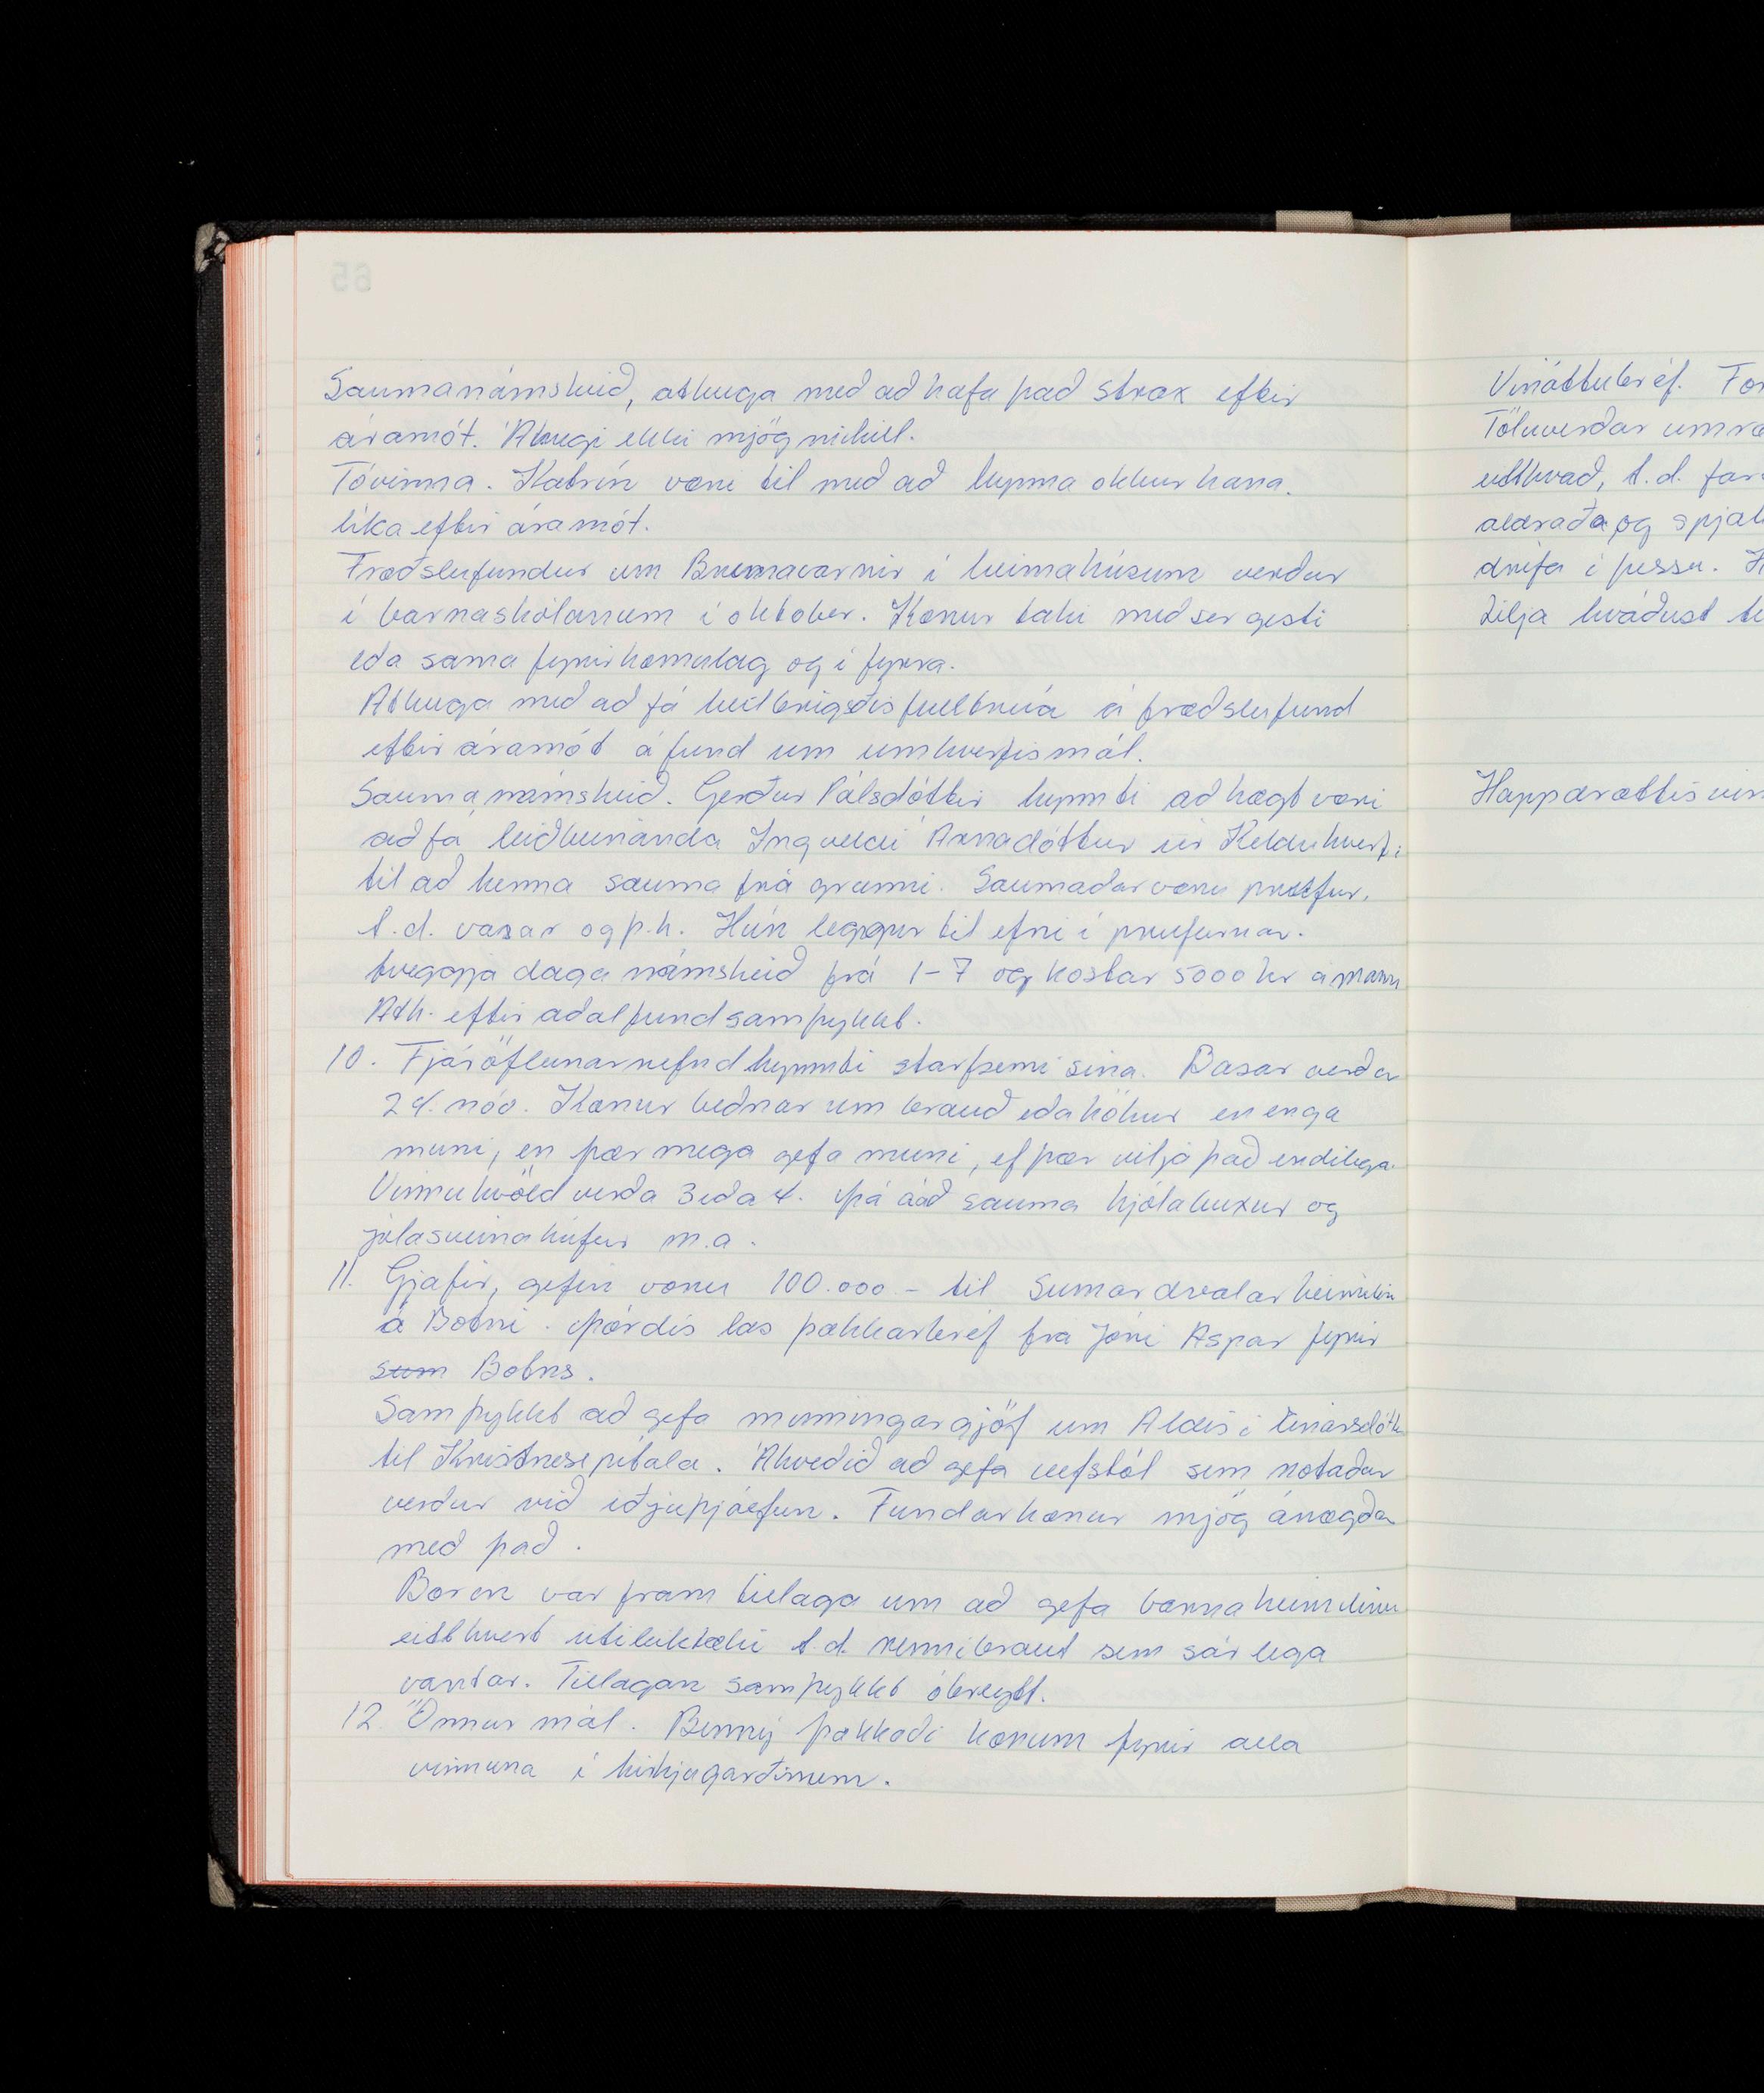 Saumanámskeið, athuga með að hafa það strax eftir
áramót. Áhugi ekki mjög mikill.
Tóvinna. Katrín væri til með að kynna okkur hana.
líka eftir áramót.
Fræðslufundur um Brunavarnir í heimahúsum verður
í barnaskólanum í október. Konur taki með ser gesti
eða sama fyrirkomulag og í fyrra.
Athuga með að fá heilbrigðisfulltrúa á fræðslufund
eftir áramót á fund um umhverfismál.
Saumanámskeið. Gerður Pálsdóttir kynnti að hægt væri
að fá leiðbeinanda Ingveldi Árnadóttur úr Kelduhverfi
til að kenna sauma frá grunni. Saumaðar væru prufur.
t.d. vasar og þ.h. Hún leggur til efni í prufurnar.
tveggja daga námskeið frá 1-7 og kostar 5000 kr á mann
Ath. eftir aðalfund samþykkt.
10. Fjáröflunarnefnd kynnti starfsemi sína. Basar verður
24. nóv. Konur beðnar um brauð eða kökur en enga
muni, en þær mega gefa muni, ef þær vilja það endilega.
Vinnukvöld verða 3 eða 4. Þá á að sauma hjólabuxur og
jólasveinahúfur m.a.
11. Gjafir, gefin voru 100.000 - til Sumardvalarheimilin
á Botni. Þórdís las þakkarbréf frá Jóni Aspar fyrir
sum Botns.
Samþykkt að gefa minningargjöf um Aldísi Einarsdóttu
til Kristnesspítala. Ákveðið að gefa vefstól sem notaður
verður við iðjuþjálfun. Fundarkonur mjög ánægðar
með það.
Borin var fram tillaga um að gefa barnaheimilinu
eitthvert útileiktæki t.d. rennibraut sem sárlega
vantar. Tillagan samþykkt óbreytt.
12. Önnur mál. Benný þakkaði konum fyrir alla
vinnuna í kirkjugarðinum.
Vináttubréf. For
Töluverðar umræ
eitthvað, t.d. far
aldraða og spjal
drífa í þessu. H
Lilja kváðust
Happdrættisvin